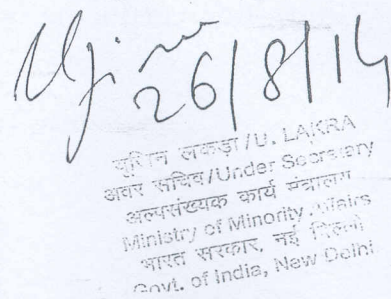 26/8/14
यूजिन लकड़ा/U. LAKRA
अवर सचिव/Under Secretary
अल्पसंख्यक कार्य मंत्रालय
Ministry of Minority Affairs
भारत सरकार, नई दिल्ली
Govt. of India, New Delhi